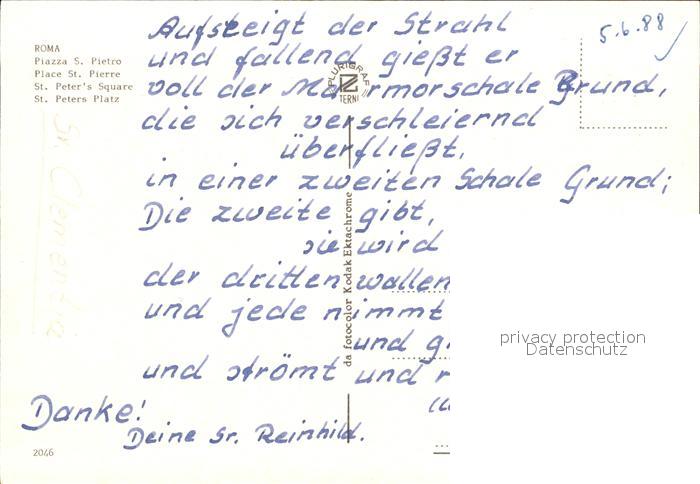 ROMA
Piazza S. Pietro
Place St. Pierre
St. Peter's Square
St. Peters Platz
5.6.88
Aufsteigt der Strahl
und fallend gießt er
voll der Marmorschale Grund,
die sich verschleiernd
überfließt,
in einer zweiten Schale Grund;
Die zweite gibt,
sie wird
der dritten wallen
und jede nimmt
und g
und strömt und r
Danke!
Deine Sr. Reinhild.
Sr. Clementia
PLURIGRAF
TERNI
da fotocolor Kodak Ektachrome
privacy protection
Datenschutz
2046